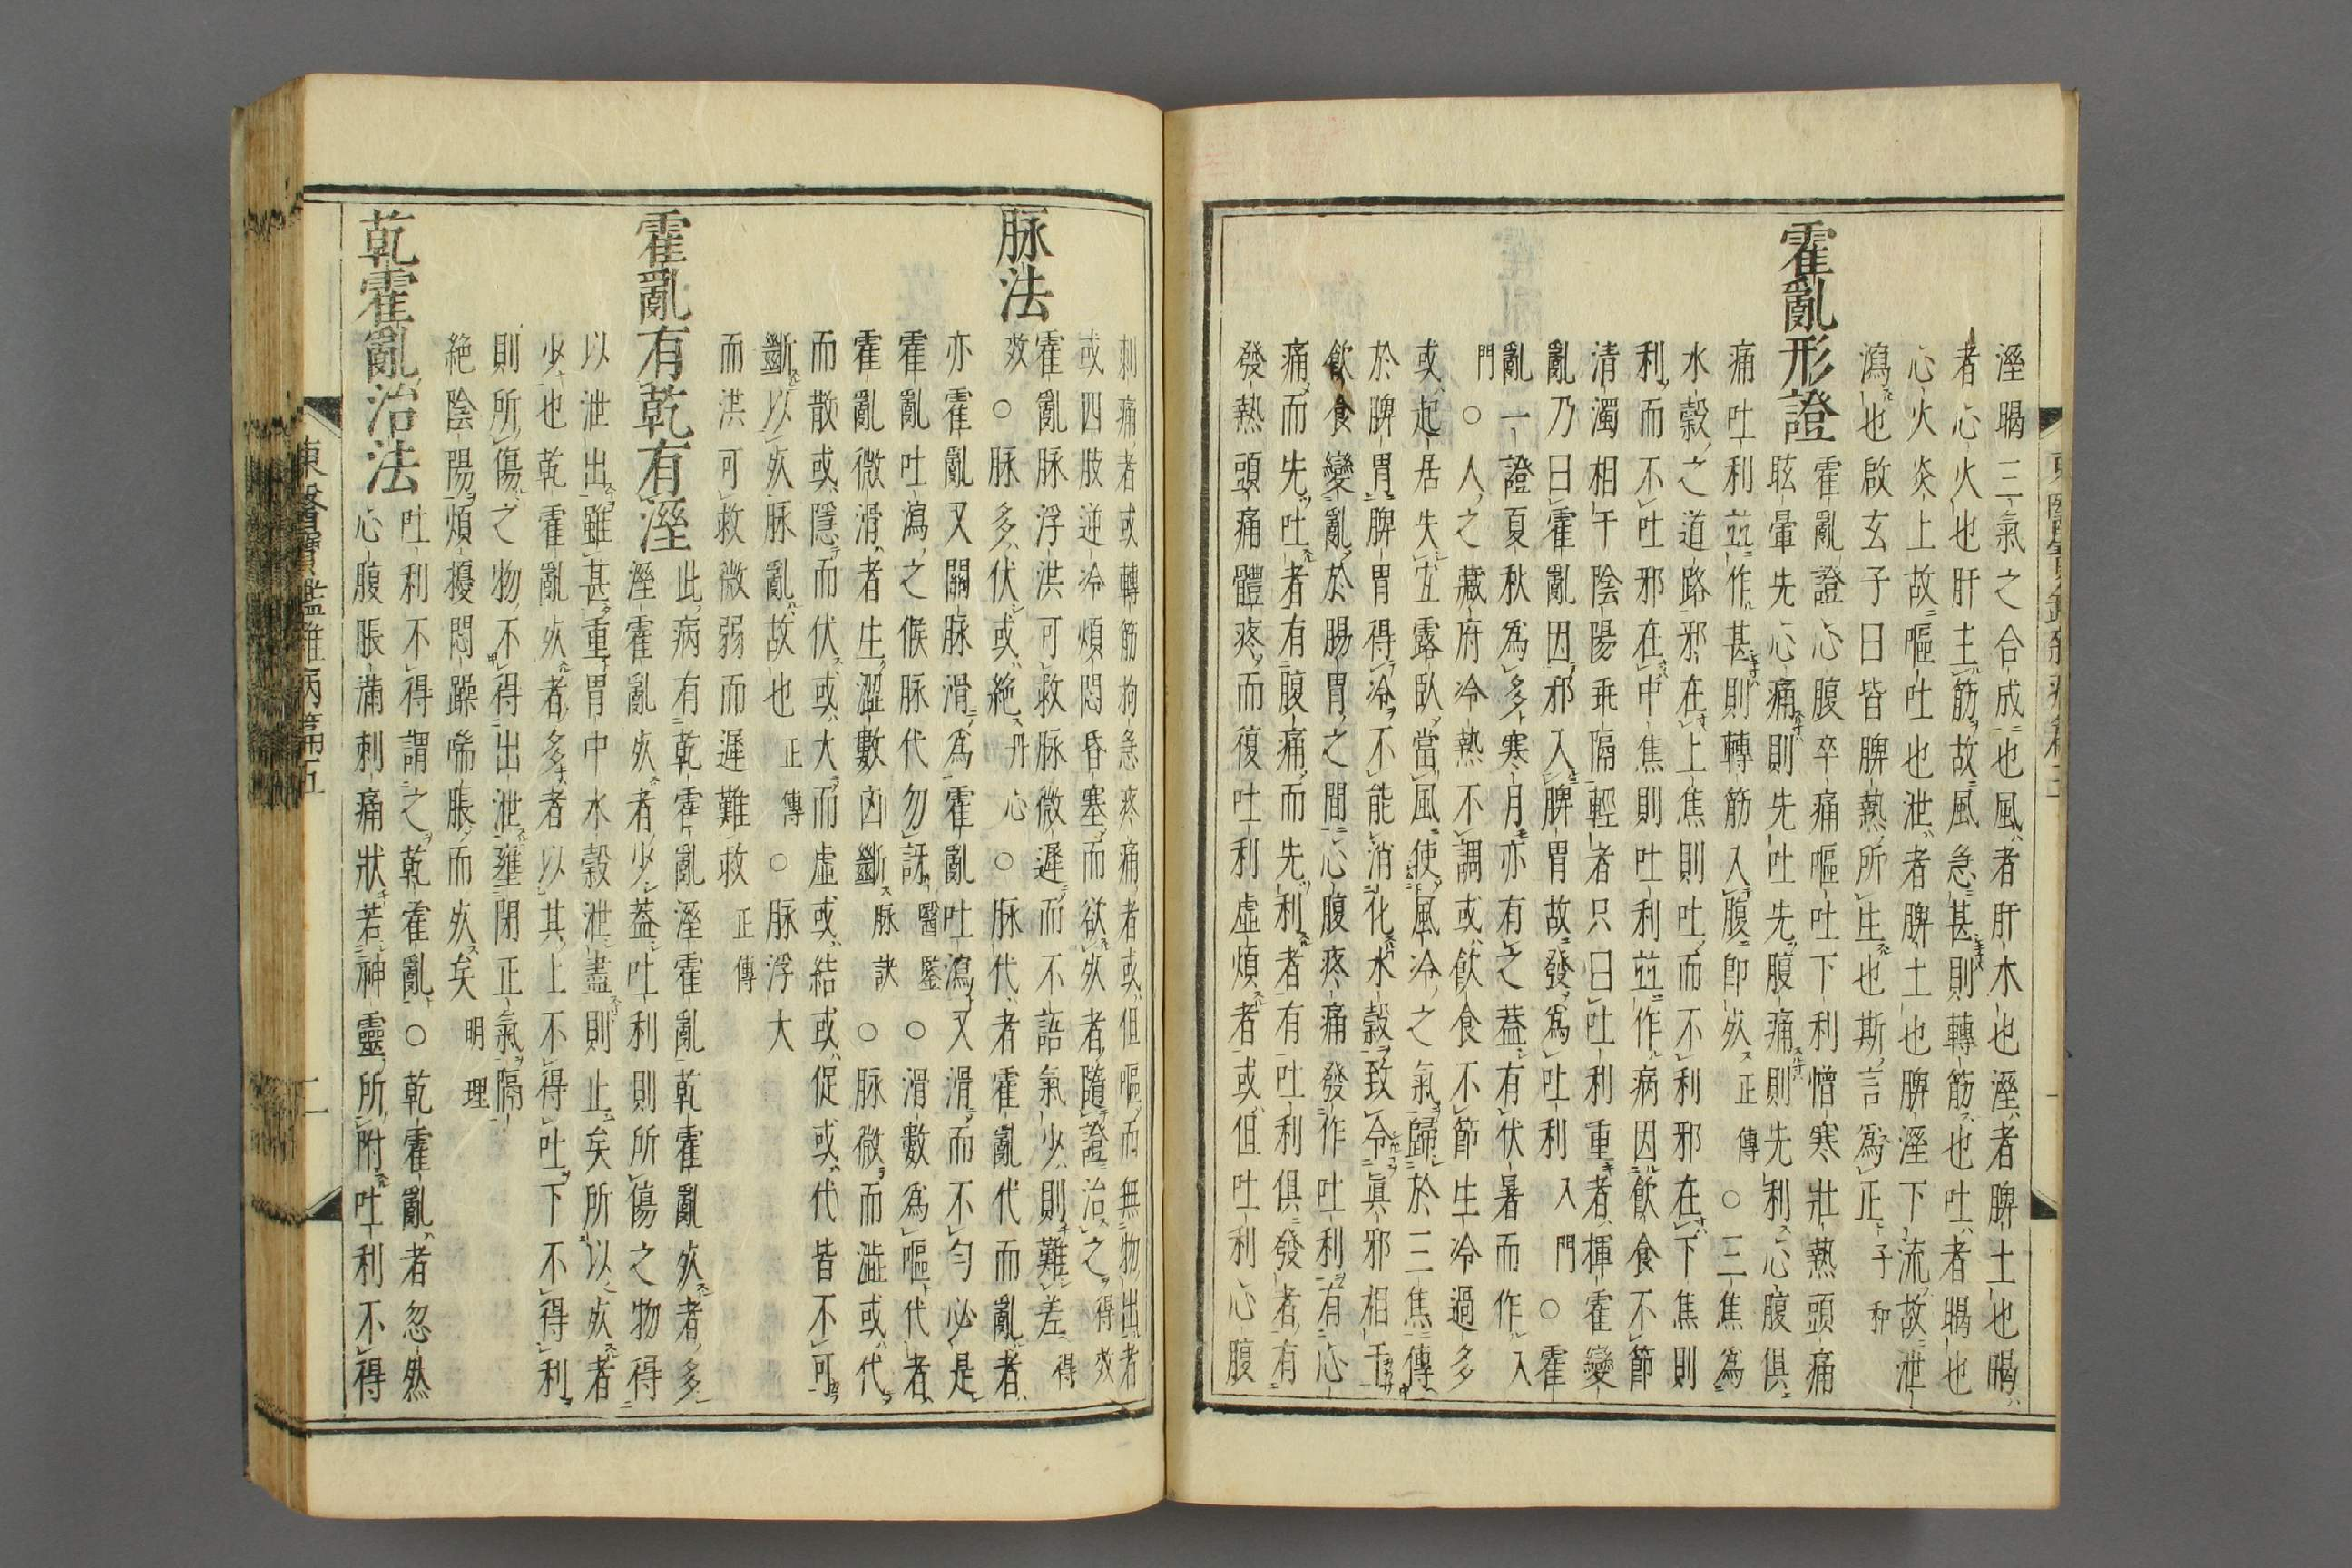 溼暍三氣之合成也風者肝木也溼者脾土也暍
者心火也肝主筋故風急甚則轉筋也吐者暍也
心火炎上故嘔吐也泄者脾土也脾溼下流故泄
瀉也啟玄子曰皆脾熱所生也斯言爲正子和
霍亂形證霍亂證心腹卒痛嘔吐下利憎寒壯熱頭痛
眩暈先心痛則先吐先腹痛則先利心腹俱
痛吐利並作甚則轉筋入腹卽死正傳○三焦爲
水穀之道路邪在上焦則吐而不利邪在下焦則
利而不吐邪在中焦則吐利並作病因飮食不節
清濁相干陰陽乖隔輕者只曰吐利重者揮霍變
亂乃曰霍亂因邪入脾胃故發爲吐利入門○霍
亂一證夏秋爲多寒月亦有之葢有伏暑而作入
門○人之藏府冷熱不調或飮食不節生冷過多
或起居失宜露臥當風使風冷之氣歸於三焦傳
於脾胃脾胃得冷不能消化水穀致令眞邪相干
飮食變亂於腸胃之間心腹疼痛發作吐利有心
痛而先吐者有腹痛而先利者有吐利俱發者有
發熱頭痛體疼而復吐利虛煩者或但吐利心腹
刺痛者或轉筋拘急疼痛者或但嘔而無物出者
或四肢逆冷煩悶昏塞而欲死者隨證治之得效
脉法霍亂脉浮洪可救脉微遲而不語氣少則難差得
效○脉多伏或絶丹心○脉代者霍亂代而亂者
亦霍亂又關脉滑爲霍亂吐瀉又滑而不勻必是
霍亂吐瀉之候脉代勿訝醫鑒○滑數爲嘔代者
霍亂微滑者生澀數凶斷脉訣○脉微而澁或代
而散或隱而伏或大而虛或結或促或代皆不可
斷以死脉亂故也正傳○脉浮大
而洪可救微弱而遲難救正傳
霍亂有乾有溼此病有乾霍亂溼霍亂乾霍亂死者多
溼霍亂死者少葢吐利則所傷之物得
以泄出雖甚重胃中水穀泄盡則止矣所以死者
少也乾霍亂死者多者以其上不得吐下不得利
則所傷之物不得出泄壅閉正氣隔
絶陰陽煩擾悶躁喘脹而死矣明理
乾霍亂治法吐利不得謂之乾霍亂○乾霍亂者忽然
心腹脹滿刺痛狀若神靈所附吐利不得
東醫寶鑑雜病篇五
二